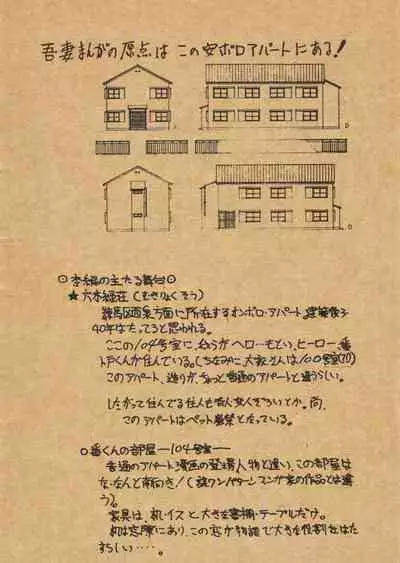 吾妻まんがの原点は この安ボロアパートにある!
◎本編の主たる舞台◎
★六本緑荘（むせりょくそう）
練馬区西東方面に所在するオンボロ・アパート。建築後
40年はたってると思われる。
ここの104号室に、わらがヘロー、もとい、ヒーロー、番
くんが住んでいる。(ちなみに 大家さんは100号室
このアパート、造りが、ちょっと普通のアパートと違うらしい。
したがって住んでる住人も
このアパートはペット厳禁となっている。
◎番くんの部屋 —104号室—
普通のアパート漫画の登場人物と違い、この部屋は
な・なんと南向き! (某ワンパターンマンガ家の作品とは違
う)。
家具は、机・イスと大きな書棚・テーブルだけ。
机は窓際にあり、この窓が物語で大きな役割をはた
すらしい‥‥。